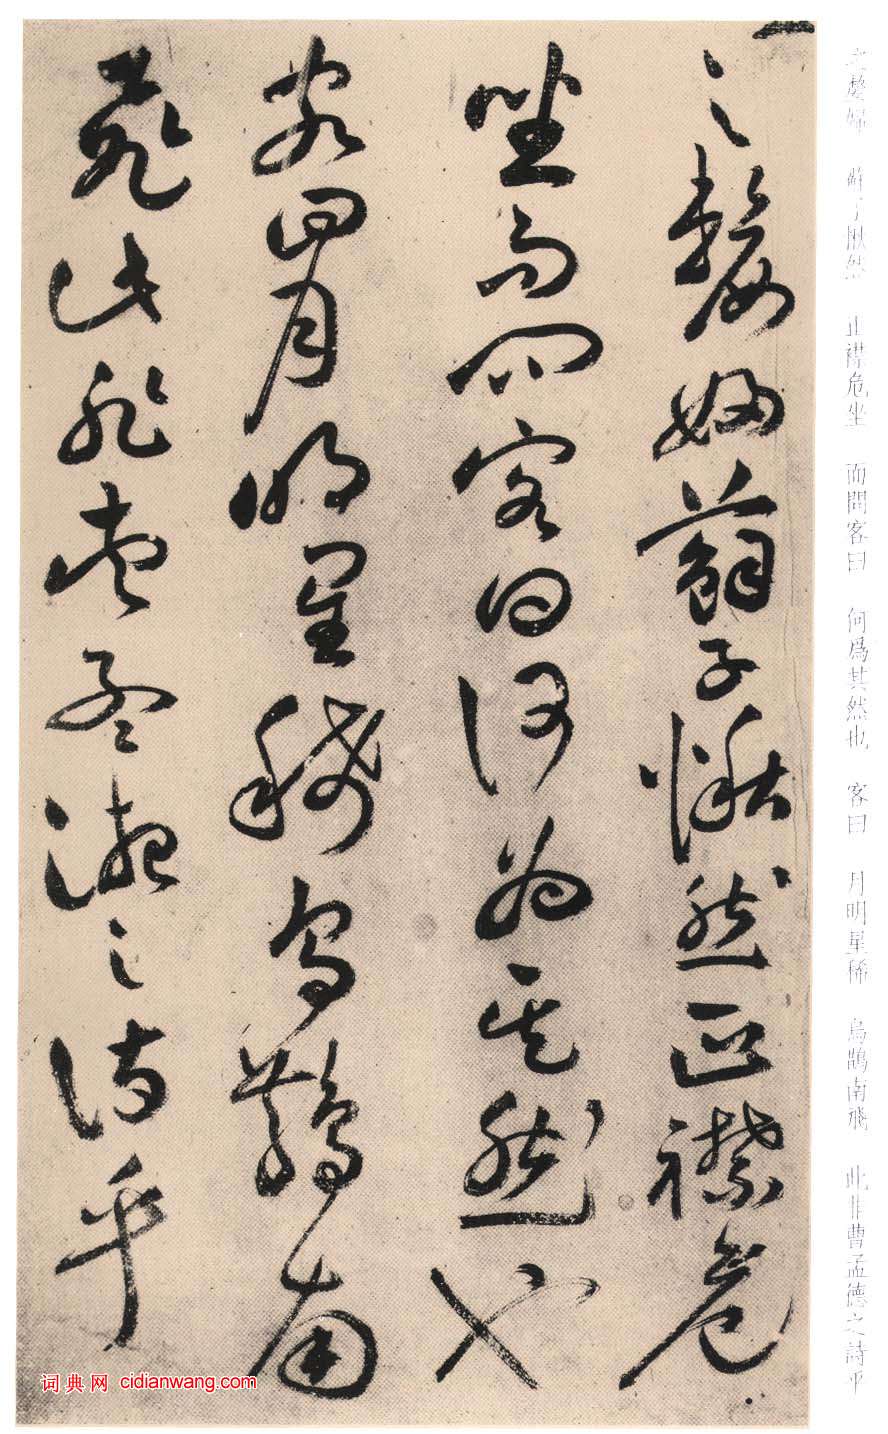 之嫠婦 蘇子愀然 正襟危坐 而問客曰 何爲其然也 客曰 月明星稀 烏鵲南飛 此非曹孟德之詩乎
之嫠婦蘇子愀然正襟危
坐而問客曰何為其然也
客曰月明星稀烏鵲南
飛此非曹孟德之詩乎
词典网 cidianwang.com